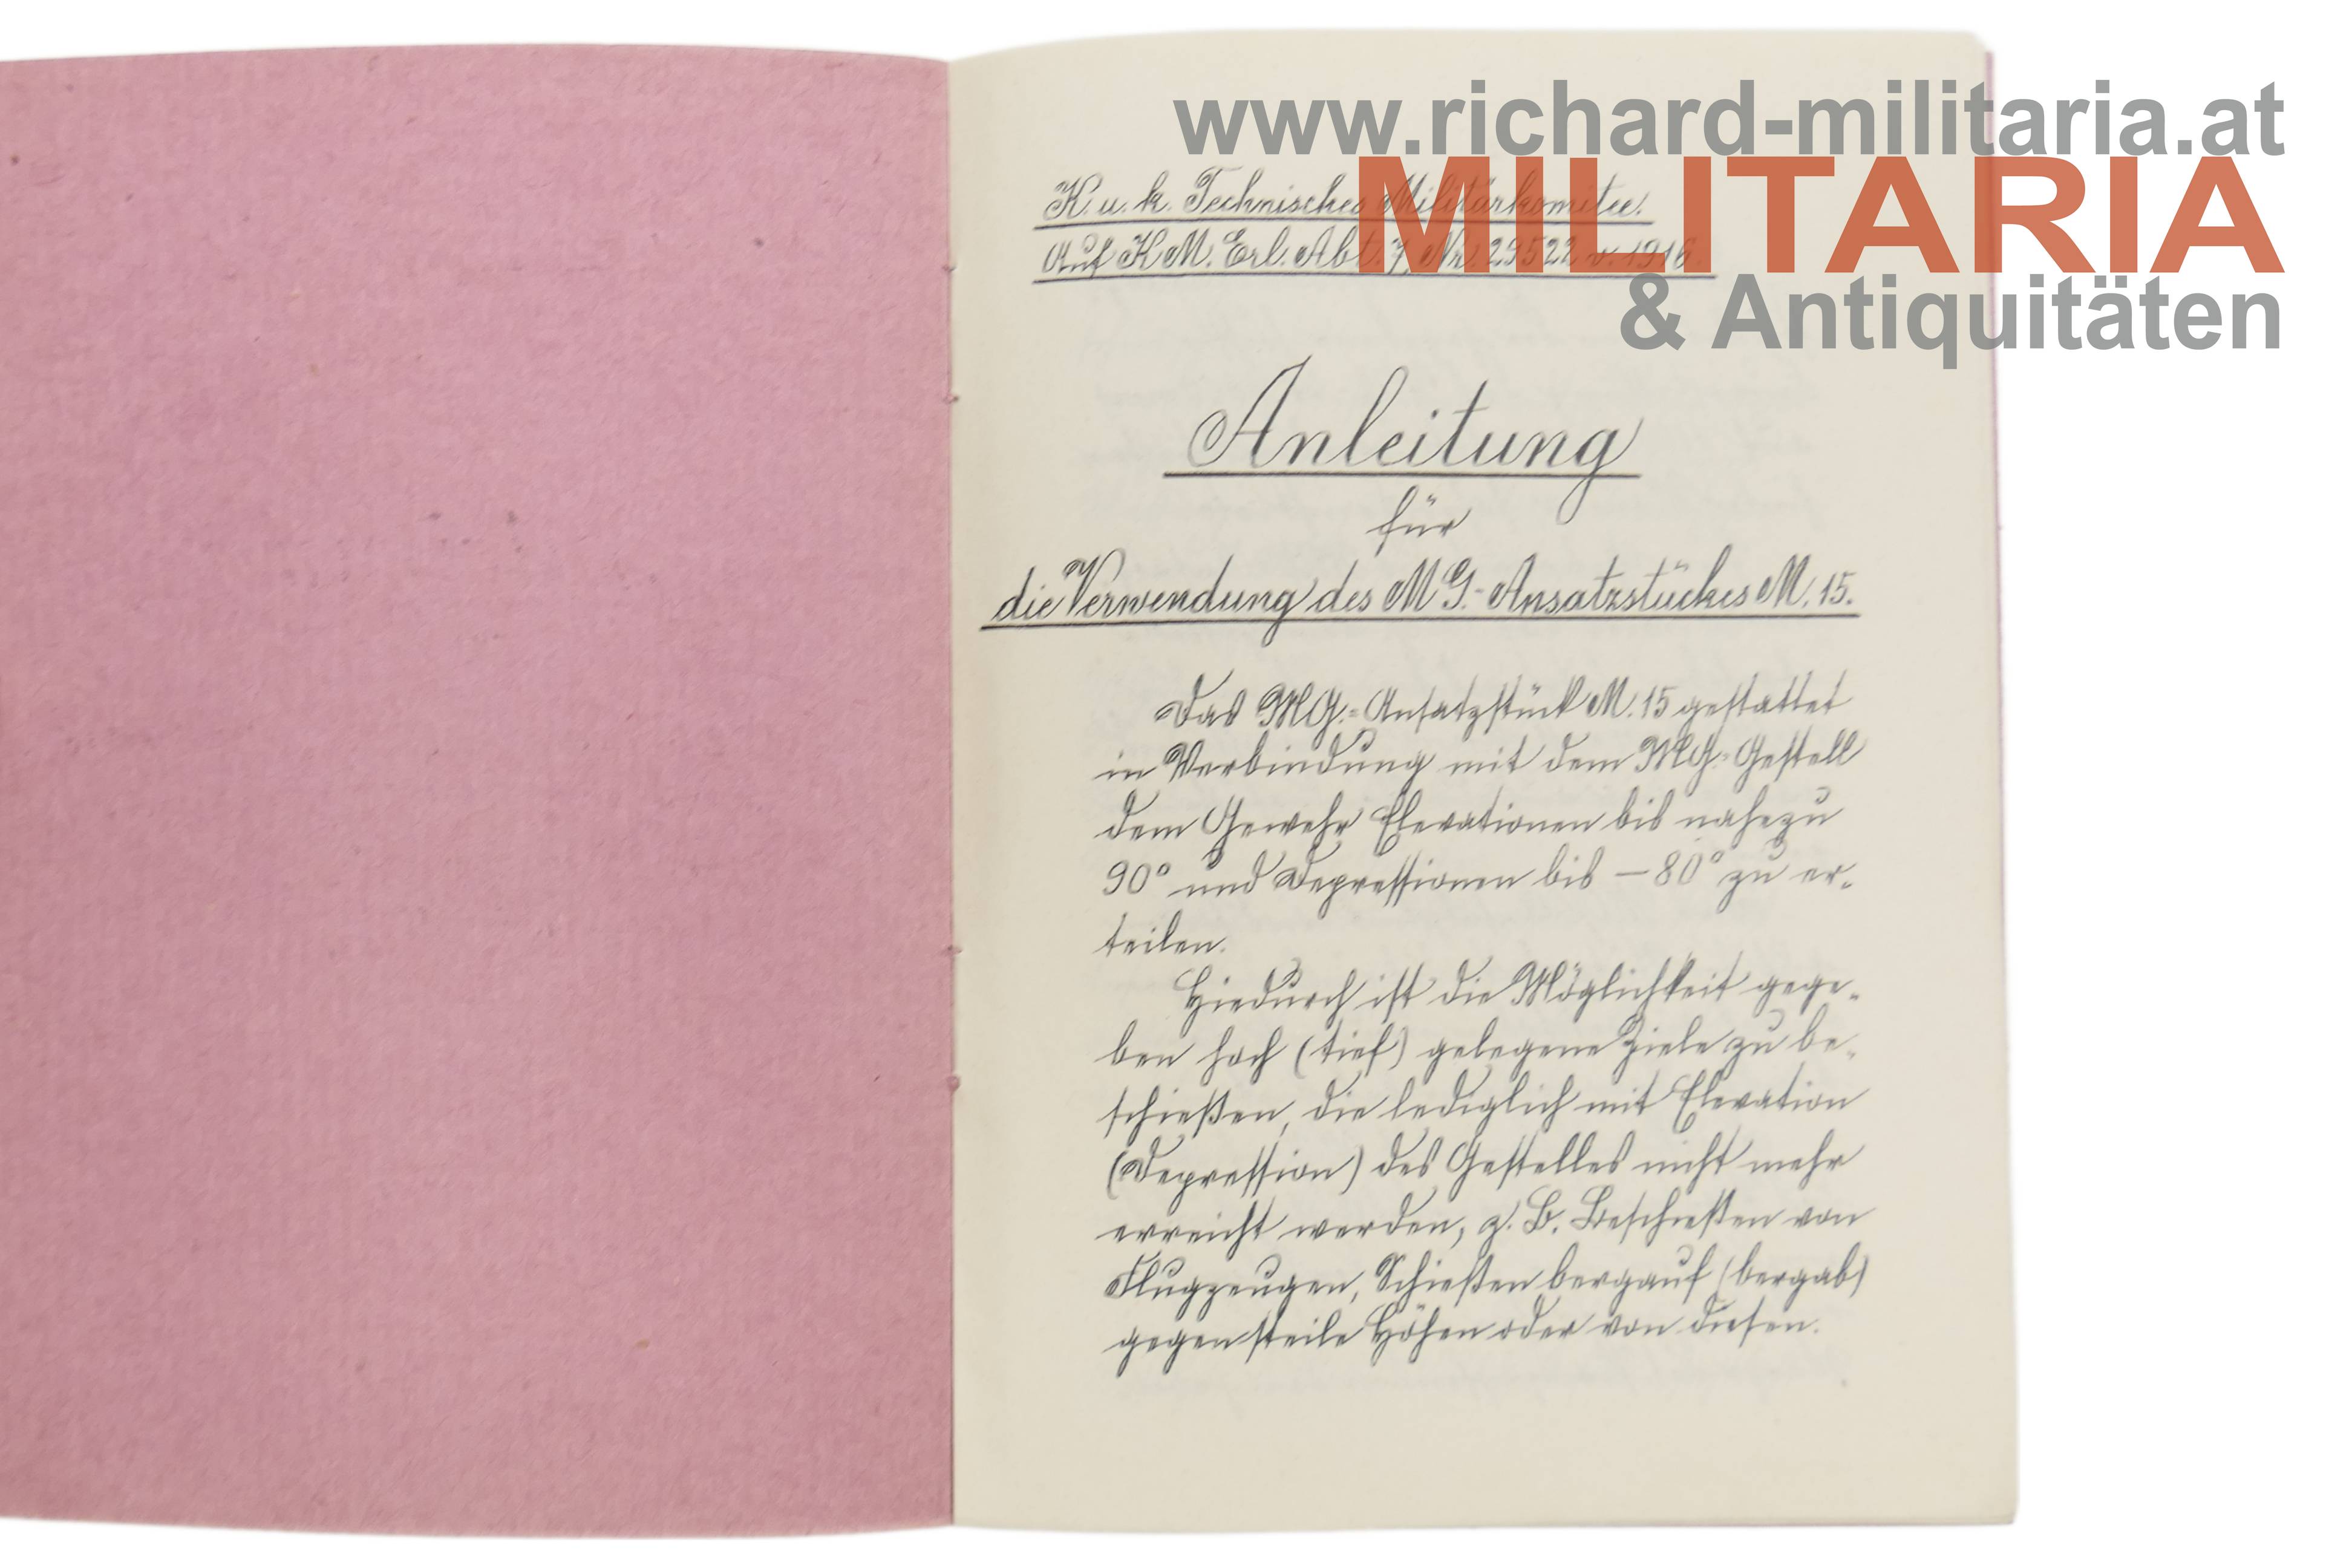 www.richard-militaria.at
MILITARIA
& Antiquitäten
K. u. k. Technisches Militärkomitee.
Auf KM. Erl. Abt. 7, Nr. 29522 v. 1916.
Anleitung
für
die Verwendung des MG.-Ansatzstückes M. 15.
Das MG.-Ansatzstück M. 15 gestattet
in Verbindung mit dem MG.-Gestell
dem Gewehr Elevationen bis nahezu
90° und Depressionen bis – 80° zu er-
teilen.
Hiedurch ist die Möglichkeit gege-
ben hoch (tief) gelegene Ziele zu be-
schießen, die lediglich mit Elevation
(Depression) des Gestelles nicht mehr
erreicht werden, z. B. Beschießen von
Flugzeugen, Schießen bergauf (bergab)
gegen steile Höhen oder von diesen.